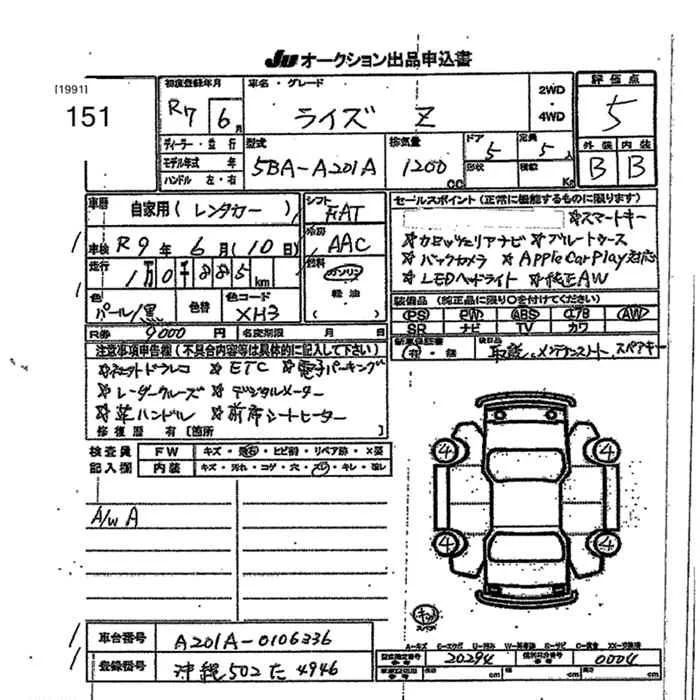 JU オークション出品申込書
[1991]
151
初度登録年月
車名・グレード
評価点
R7 6月
ライズ Z
2WD
・
4WD
5
ディーラー・並行
モデル年式 年
ハンドル 左・右
型式
5BA-A201A
排気量
1200 CC
ドア
5
形状
定員
5人
積載
Kg
外装 内装
B B
車歴
自家用(レンタカー)
シフト
FAT
セールスポイント(正常に機能するものに限ります)
☆スマートキー
車検 R9年6月(10日)
冷房
AAC
☆カロッツェリアナビ ☆プレートケース
☆バックカメラ ☆AppleCarPlay対応
☆LEDヘッドライト ☆純正AW
走行
1万0千885km
燃料
ガソリン
軽油
( )
色
パール/黒
色替
色コード
XH3
装備品(純正品に限り○を付けてください)
PS PW ABS エアB AW
SR ナビ TV カワ
R券 9000円
名変期限 月 日
新車保証書
(有)・無
後日品
取説、メンテナンスノート、スペアキー
注意事項申告欄(不具合内容等は具体的に記入して下さい)
☆ ETC ☆電子パーキング
☆レーダークルーズ ☆デジタルメーター
☆革ハンドル ☆前席シートヒーター
修復歴 有 [箇所
検査員
記入欄
FW キズ・飛石・ヒビ割・リペア跡・X要
内装 キズ・汚れ・コゲ・穴・スレ・キレ・
4 4
4 4
A/W A
A-キズ
車台番号
A201A-0106336
登録番号
沖縄502た4946
型式指定番号
20294
類別区分番号
0004